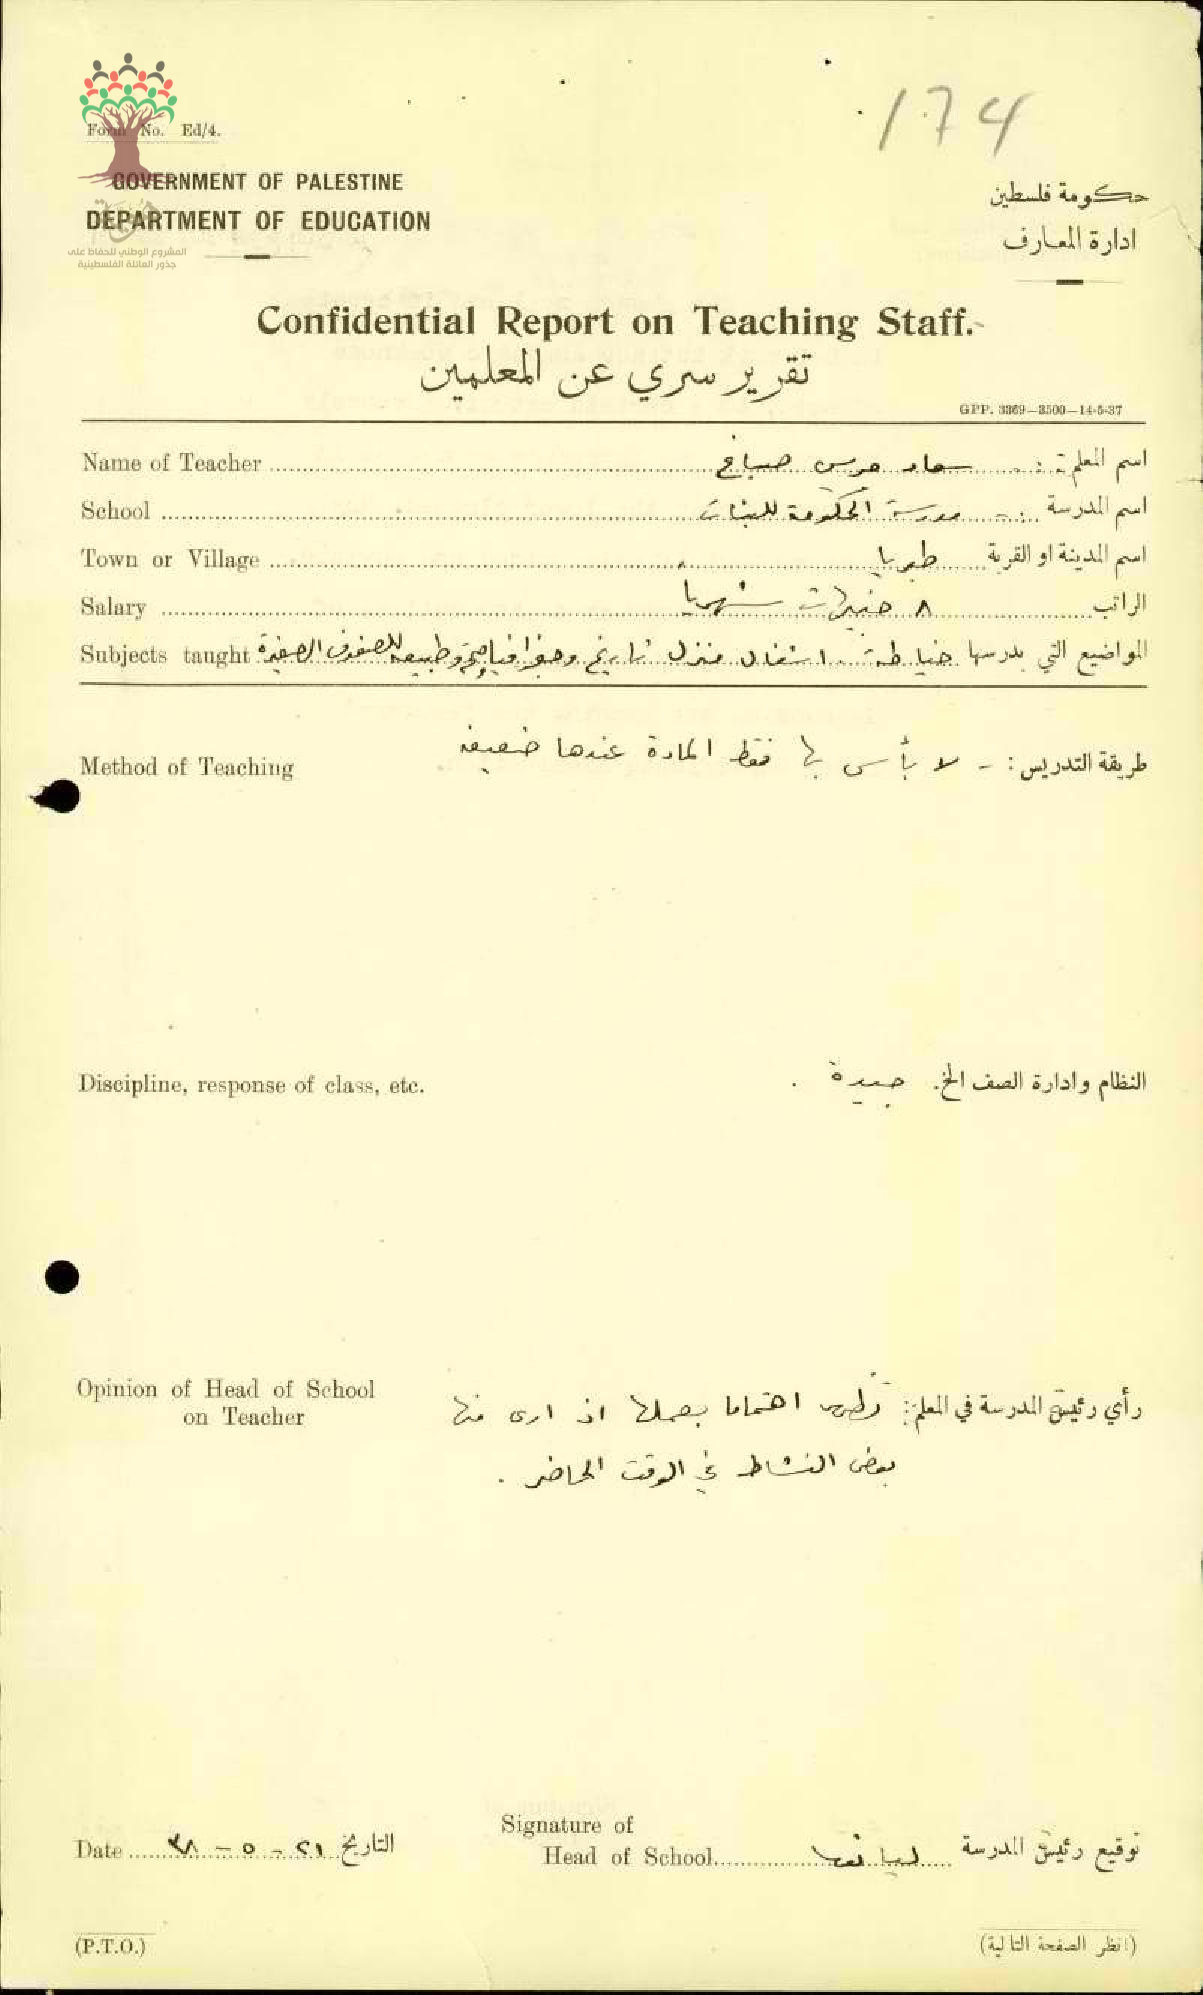 174
Form No. Ed/4.
GOVERNMENT OF PALESTINE
DEPARTMENT OF EDUCATION
حكومة فلسطين
ادارة المعارف
هوية
المشروع الوطني للحفاظ على
جذور العائلة الفلسطينية
Confidential Report on Teaching Staff.
تقرير سري عن المعلمين
GPP. 3369—3500—14-5-37
Name of Teacher سعاد صباغ اسم المعلمة :
School مدرسة الحكومة للبنات اسم المدرسة
Town or Village طبريا اسم المدينة او القرية
Salary ٨ جنيهات شهريا الراتب
Subjects taught المواضيع التي يدرسها خياطة . اشغال منزل تاريخ وجغرافيا وطبيعه للصفوف الصغيرة
Method of Teaching طريقة التدريس : - لا بأس بها فقط المادة عندها ضعيفه
Discipline, response of class, etc. النظام وادارة الصف الخ. جيدة .
Opinion of Head of School
on Teacher
رأي رئيسة المدرسة في المعلمة : تظهر اهتماما بعملها اذ ارى منها
بعض النشاط في الوقت الحاضر .
Signature of
Head of School توقيع رئيسة المدرسة
Date ٢١ - ٥ - ٣٨ التاريخ
(P.T.O.) (انظر الصفحة التالية)